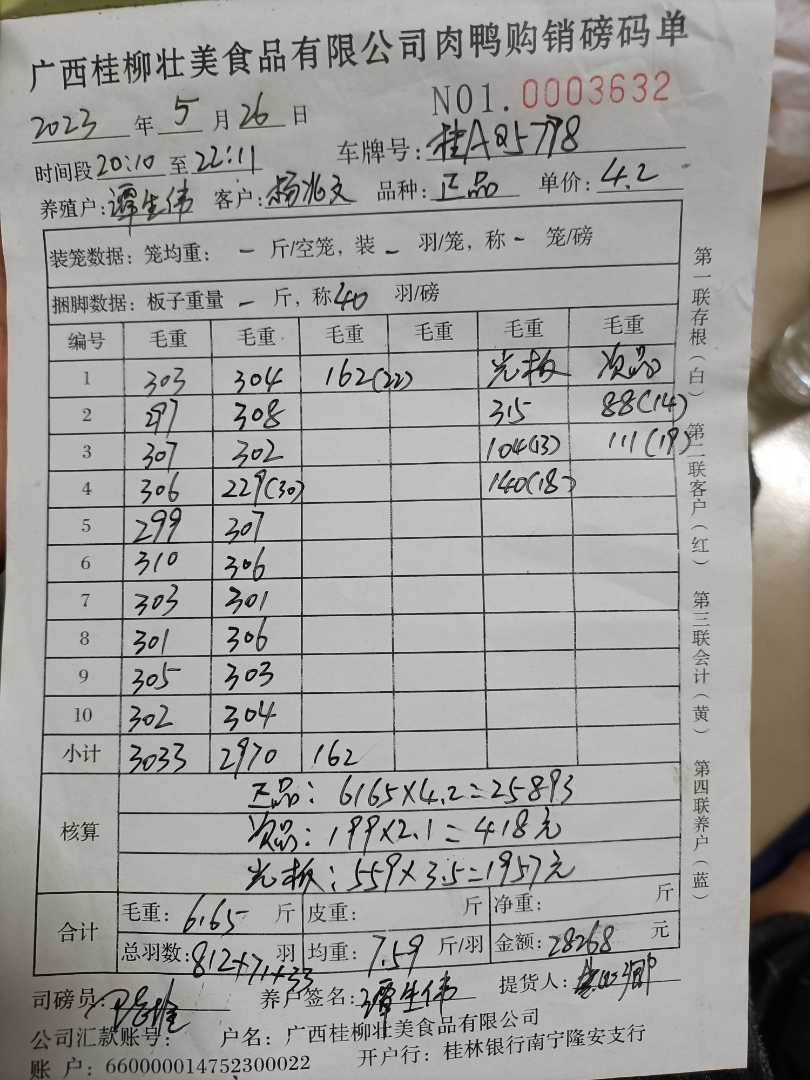 广西桂柳壮美食品有限公司肉鸭购销磅码单
NO1.0003632
2023 年 5 月 26 日
时间段 20:10 至 22:11 车牌号: 桂AQ5778
养殖户: 谭生伟 客户: 杨兆文 品种: 正品 单价: 4.2
装笼数据: 笼均重: - 斤/空笼, 装 - 羽/笼, 称 - 笼/磅
捆脚数据: 板子重量 - 斤, 称 40 羽/磅
编号 毛重 毛重 毛重 毛重 毛重 毛重
1 303 304 162(22) 光板 次品
2 297 308 315 88(14)
3 307 302 104(13) 111(19)
4 306 229(30) 140(18)
5 299 307
6 310 306
7 303 301
8 301 306
9 305 303
10 302 304
小计 3033 2970 162
核算
正品: 6165×4.2=25893
次品: 199×2.1=418元
光板: 559×3.5=1957元
合计
毛重: 6165 斤 皮重: 斤 净重: 斤
总羽数: 812+71+33 羽 均重: 7.59 斤/羽 金额: 28268 元
司磅员: 养户签名: 谭生伟 提货人:
公司汇款账号: 户名: 广西桂柳壮美食品有限公司
账户: 660000014752300022 开户行: 桂林银行南宁隆安支行
第一联存根(白) 第二联客户(红) 第三联会计(黄) 第四联养户(蓝)